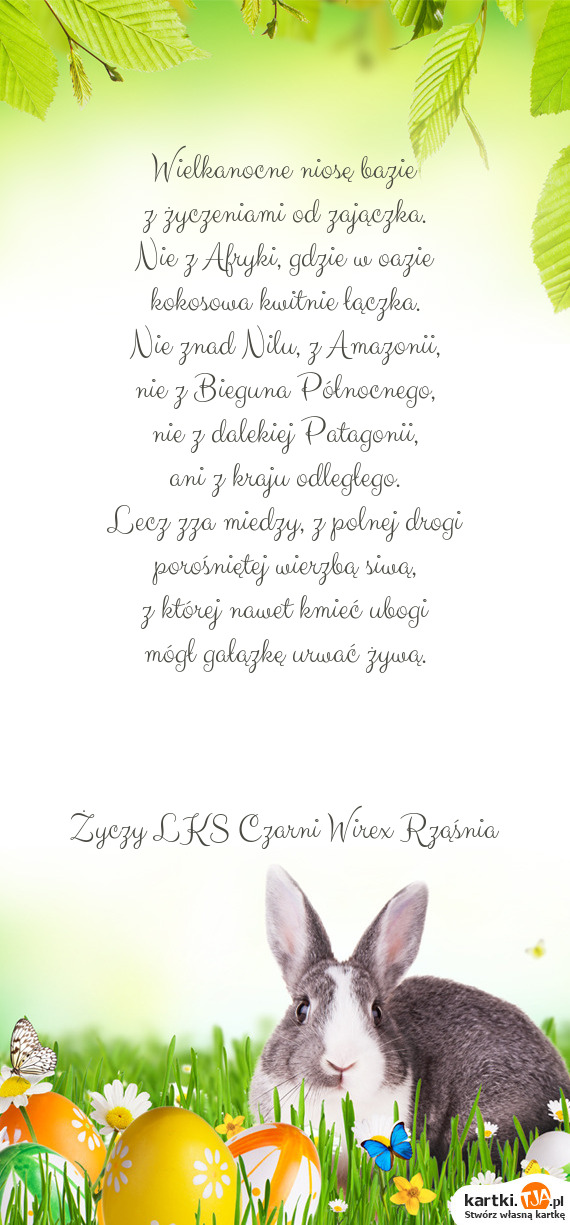 Wielkanocne niosę bazie
z życzeniami od zajączka.
Nie z Afryki, gdzie w oazie
kokosowa kwitnie łączka.
Nie znad Nilu, z Amazonii,
nie z Bieguna Północnego,
nie z dalekiej Patagonii,
ani z kraju odległego.
Lecz zza miedzy, z polnej drogi
porośniętej wierzbą siwą,
z której nawet kmieć ubogi
mógł gałązkę urwać żywą.
Życzy LKS Czarni Wirex Rząśnia
kartki.TJA.pl
Stwórz własną kartkę